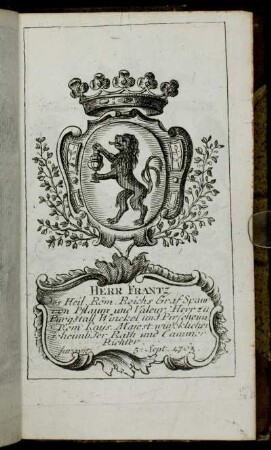 HERR FRANTZ
des Heil. Röm. Reichs Graf Spaur
von Pflaum und Valeur, Herr zu
Burgstall, Winckel und
Röm. Kays. Majest. würcklicher
Geheimbder Rath und Cammer
Richter
5. Sept.